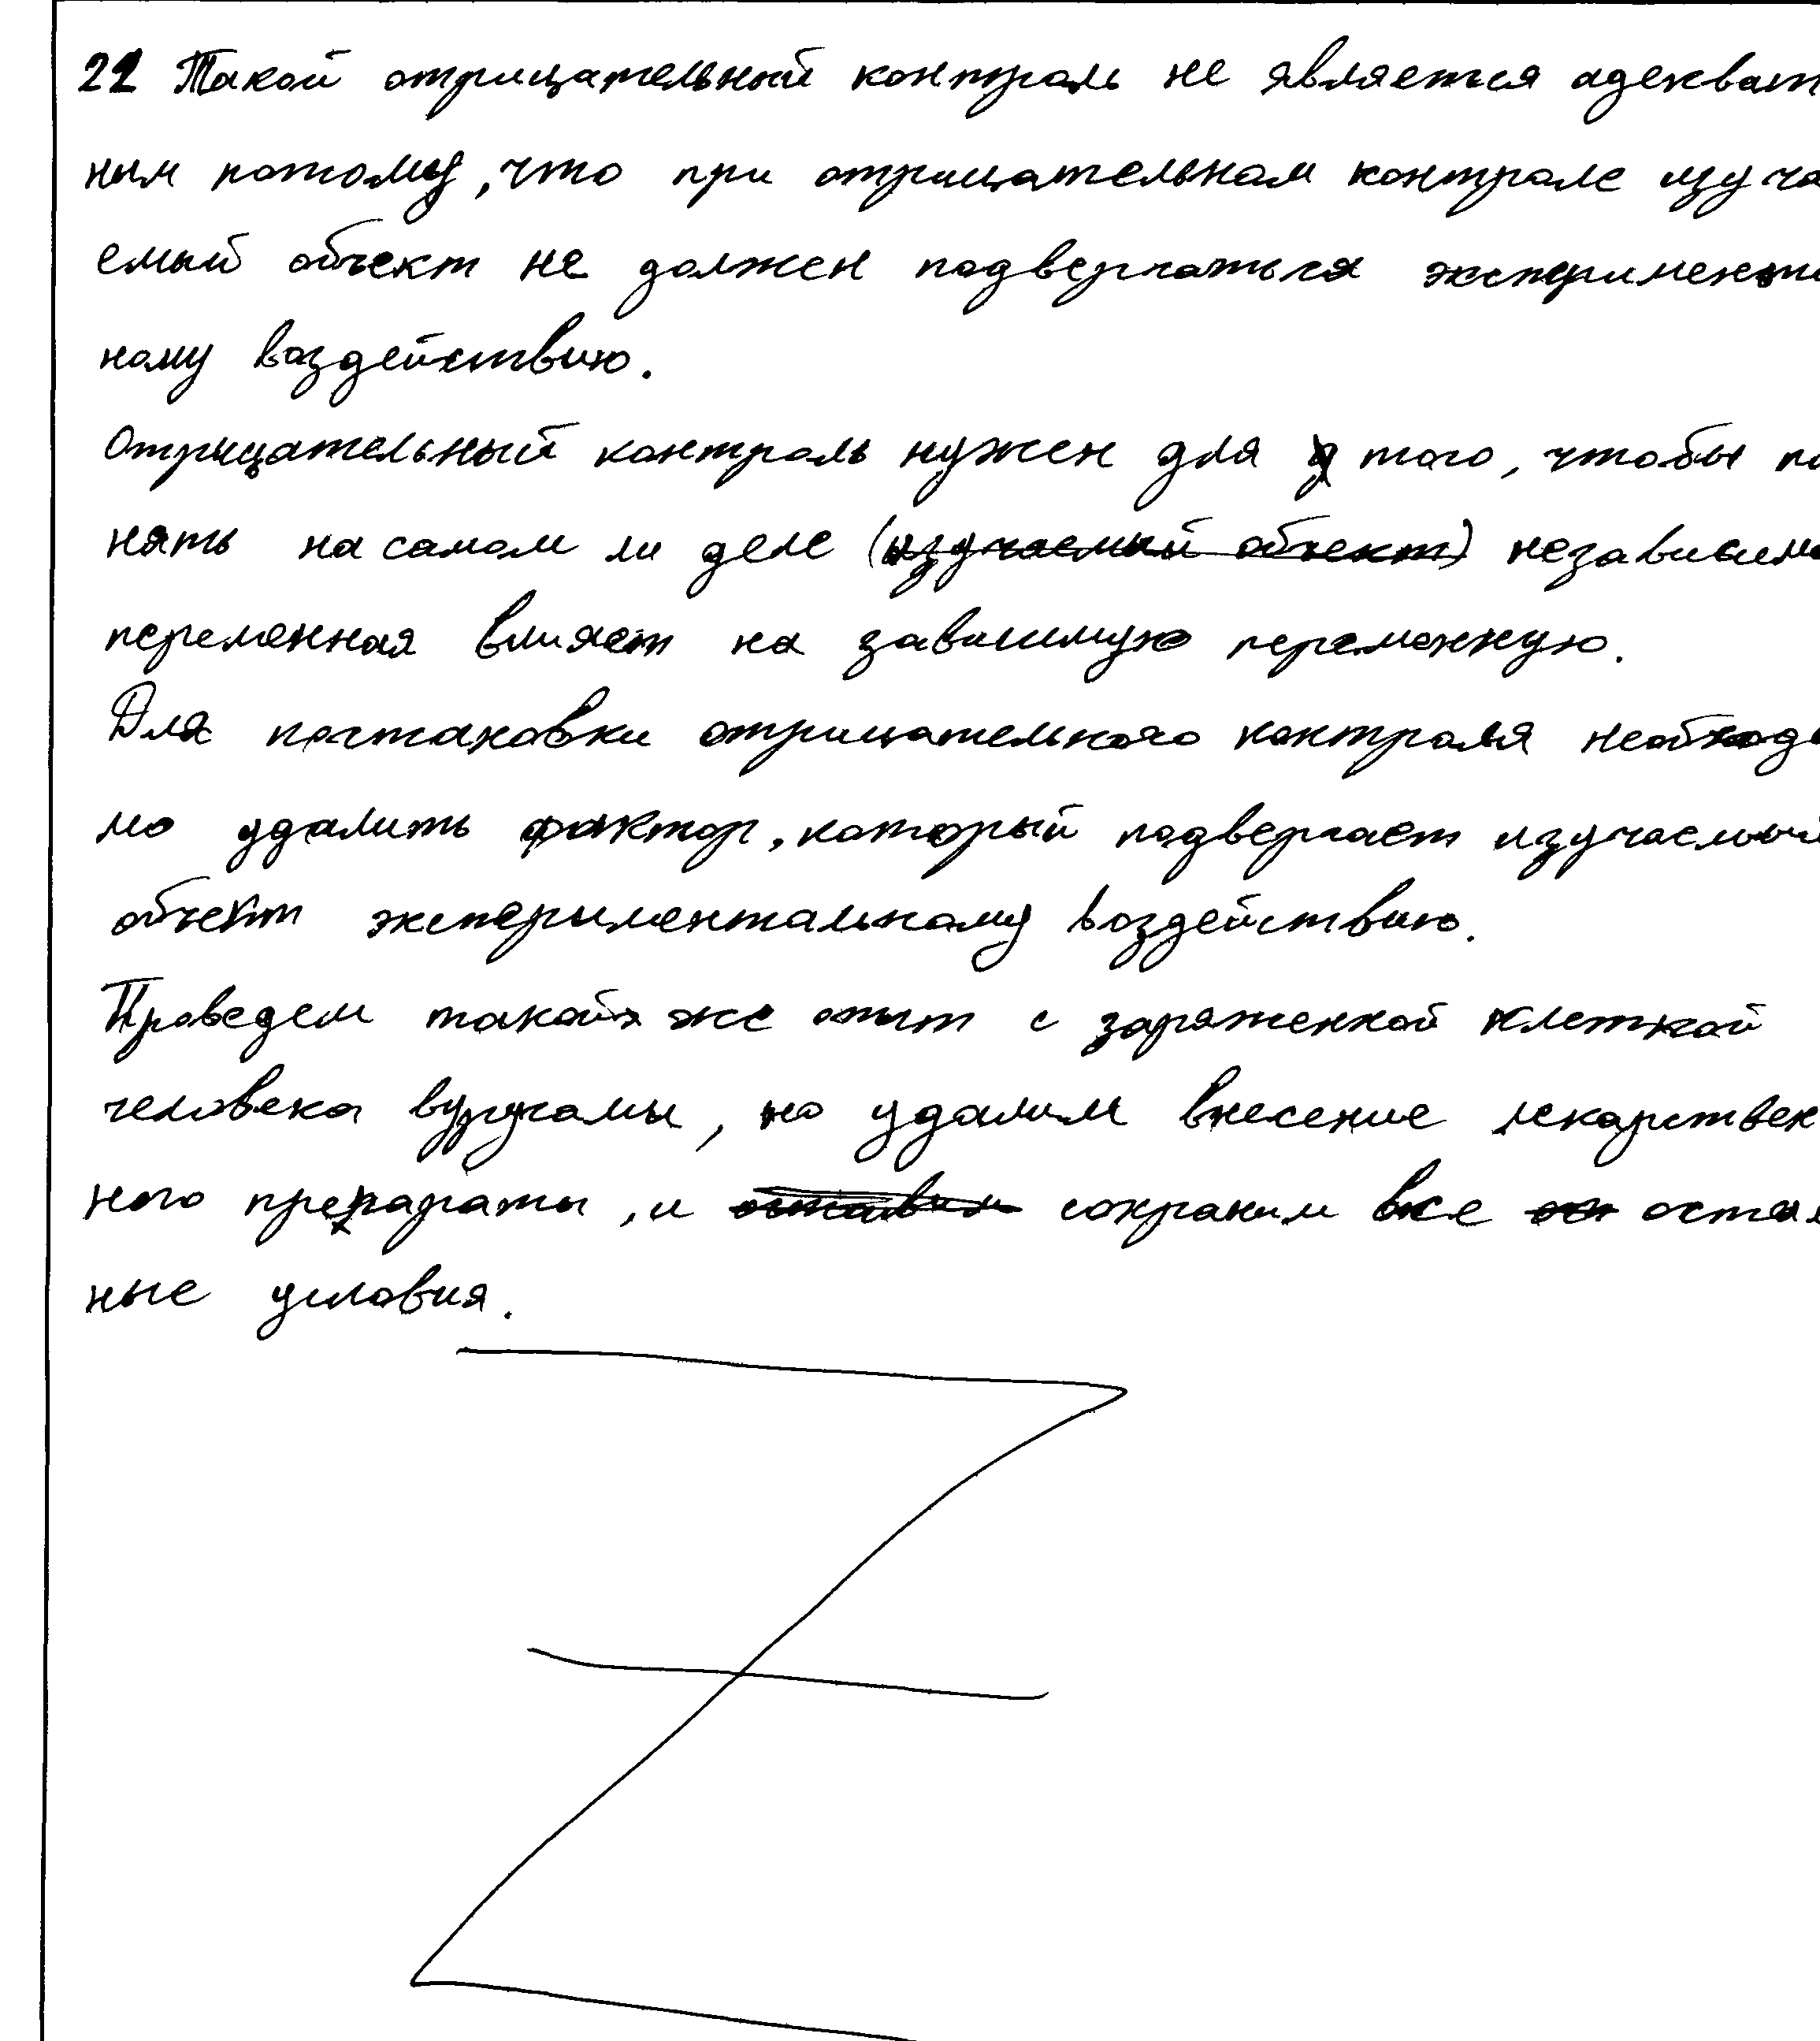 22 Такой отрицательный контроль не является адекват
ным потому, что при отрицательном контроле изуча
емый объект не должен подвергаться эксперимент
ному воздействию.
Отрицательный контроль нужен для того, чтобы по
нять на самом ли деле (изучаемый объект) независим
переменная влияет на зависимую переменную.
Для постановки отрицательного контроля необходи
мо удалить фактор, который подвергает изучаемый
объект экспериментальному воздействию.
Проведем такой же опыт с зараженной клеткой
человека вирусами, но удалим внесение лекарствен
ного препараты, и оставим сохраним все ос осталь
ные условия.
Z